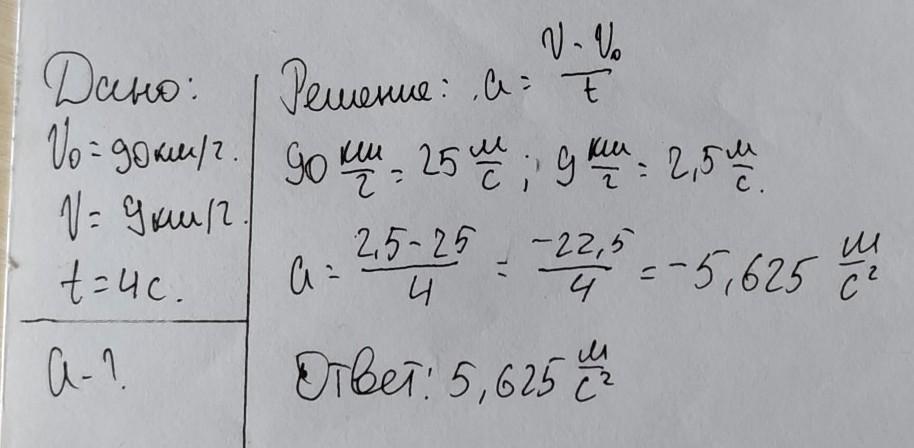 Дано:
V₀ = 90 км/ч.
V = 9 км/ч.
t = 4 с.
a - ?
Решение: a = (V - V₀)/t
90 км/ч = 25 м/с; 9 км/ч = 2,5 м/с.
a = (2,5 - 25)/4 = (-22,5)/4 = -5,625 м/с²
Ответ: 5,625 м/с²